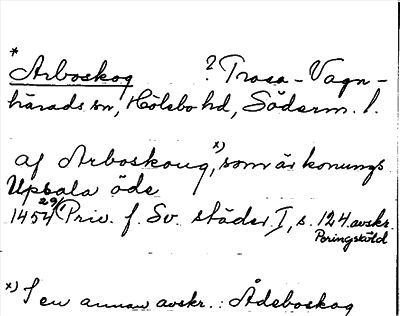 * Arboskog ? Trosa-Vagn-
härads sn, Hölebo hd, Söderm. l.
af Arboskoug, x) som är konungs
Upsala öde
1454 29/1 (Priv. f. Sv. städer, I, s. 124 avskr.
Peringskiöld
x) I en annan avskr.: Ådeboskog